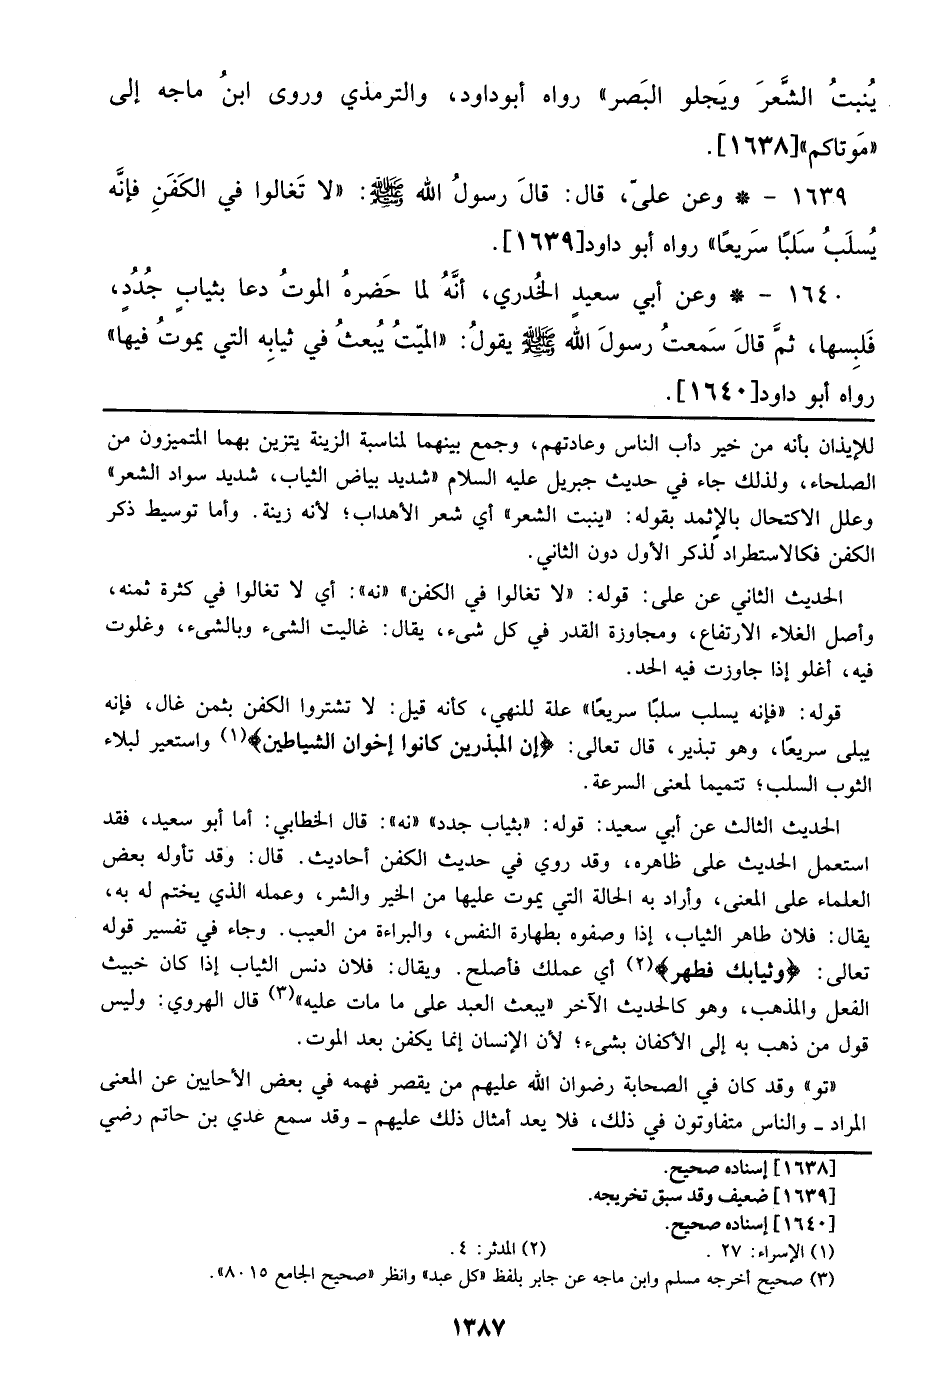 يُنبتُ الشَّعرَ ويَجلو البَصر» رواه أبوداود، والترمذي وروى ابنُ ماجه إلى
«مَوتاكم»[١٦٣٨].
١٦٣٩ - * وعن علىّ، قال: قالَ رسولُ الله ﷺ: «لا تَغالوا في الكَفَنِ فإنَّه
يُسلَبُ سَلبًا سَريعًا» رواه أبو داود[١٦٣٩].
١٦٤٠ - * وعن أبي سعيدٍ الخُدري، أنَّهُ لما حَضرهُ الموتُ دعا بثيابٍ جُدُدٍ،
فَلبِسها، ثمَّ قالَ سَمعتُ رسولَ الله ﷺ يقولُ: «الميّتُ يُبعثُ في ثيابِه التي يموتُ فيها»
رواه أبو داود[١٦٤٠].
للإيذان بأنه من خير دأب الناس وعادتهم، وجمع بينهما لمناسبة الزينة يتزين بهما المتميزون من
الصلحاء، ولذلك جاء في حديث جبريل عليه السلام «شديد بياض الثياب، شديد سواد الشعر»
وعلل الاكتحال بالإثمد بقوله: «ينبت الشعر» أي شعر الأهداب؛ لأنه زينة. وأما توسيط ذكر
الكفن فكالاستطراد لذكر الأول دون الثاني.
الحديث الثاني عن على: قوله: «لا تغالوا في الكفن» «نه»: أي لا تغالوا في كثرة ثمنه،
وأصل الغلاء الارتفاع، ومجاوزة القدر في كل شىء، يقال: غاليت الشىء وبالشىء، وغلوت
فيه، أغلو إذا جاوزت فيه الحد.
قوله: «فإنه يسلب سلبًا سريعًا» علة للنهي، كأنه قيل: لا تشتروا الكفن بثمن غال، فإنه
يبلى سريعًا، وهو تبذير، قال تعالى: ﴿إن المبذرين كانوا إخوان الشياطين﴾(١) واستعير لبلاء
الثوب السلب؛ تتميما لمعنى السرعة.
الحديث الثالث عن أبي سعيد: قوله: «بثياب جدد» «نه»: قال الخطابي: أما أبو سعيد، فقد
استعمل الحديث على ظاهره، وقد روي في حديث الكفن أحاديث. قال: وقد تأوله بعض
العلماء على المعنى، وأراد به الحالة التي يموت عليها من الخير والشر، وعمله الذي يختم له به،
يقال: فلان طاهر الثياب، إذا وصفوه بطهارة النفس، والبراءة من العيب. وجاء في تفسير قوله
تعالى: ﴿وثيابك فطهر﴾(٢) أي عملك فأصلح. ويقال: فلان دنس الثياب إذا كان خبيث
الفعل والمذهب، وهو كالحديث الآخر «يبعث العبد على ما مات عليه»(٣) قال الهروي: وليس
قول من ذهب به إلى الأكفان بشىء؛ لأن الإنسان إنما يكفن بعد الموت.
«تو» وقد كان في الصحابة رضوان الله عليهم من يقصر فهمه في بعض الأحايين عن المعنى
المراد ـ والناس متفاوتون في ذلك، فلا يعد أمثال ذلك عليهم ـ وقد سمع عدي بن حاتم رضي
[١٦٣٨] إسناده صحيح.
[١٦٣٩] ضعيف وقد سبق تخريجه.
[١٦٤٠] إسناده صحيح.
(١) الإسراء: ٢٧ . (٢) المدثر: ٤ .
(٣) صحيح أخرجه مسلم وابن ماجه عن جابر بلفظ «كل عبد» وانظر «صحيح الجامع ٨٠١٥».
١٣٨٧